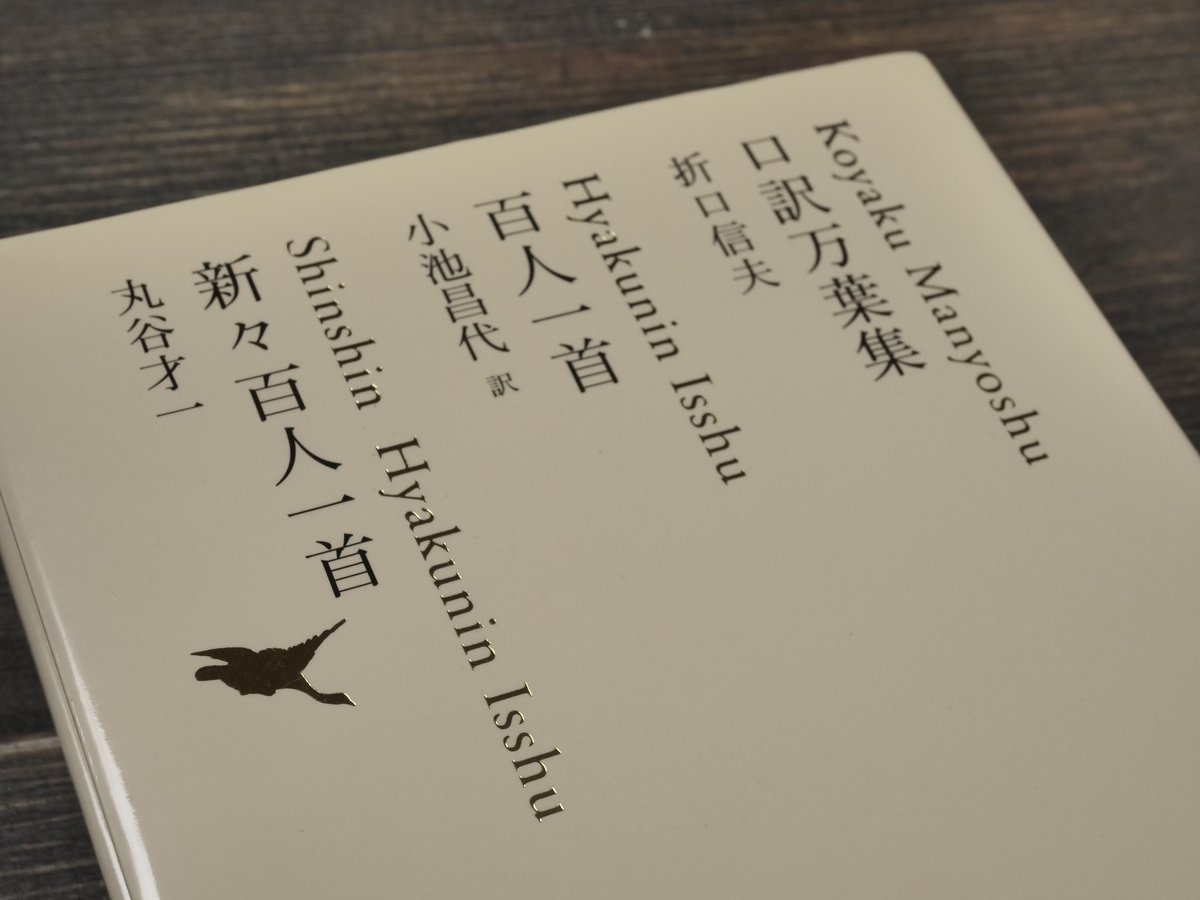 Koyaku Manyoshu
口訳万葉集
折口信夫
Hyakunin Isshu
百人一首
小池昌代 訳
Shinshin Hyakunin Isshu
新々百人一首
丸谷才一